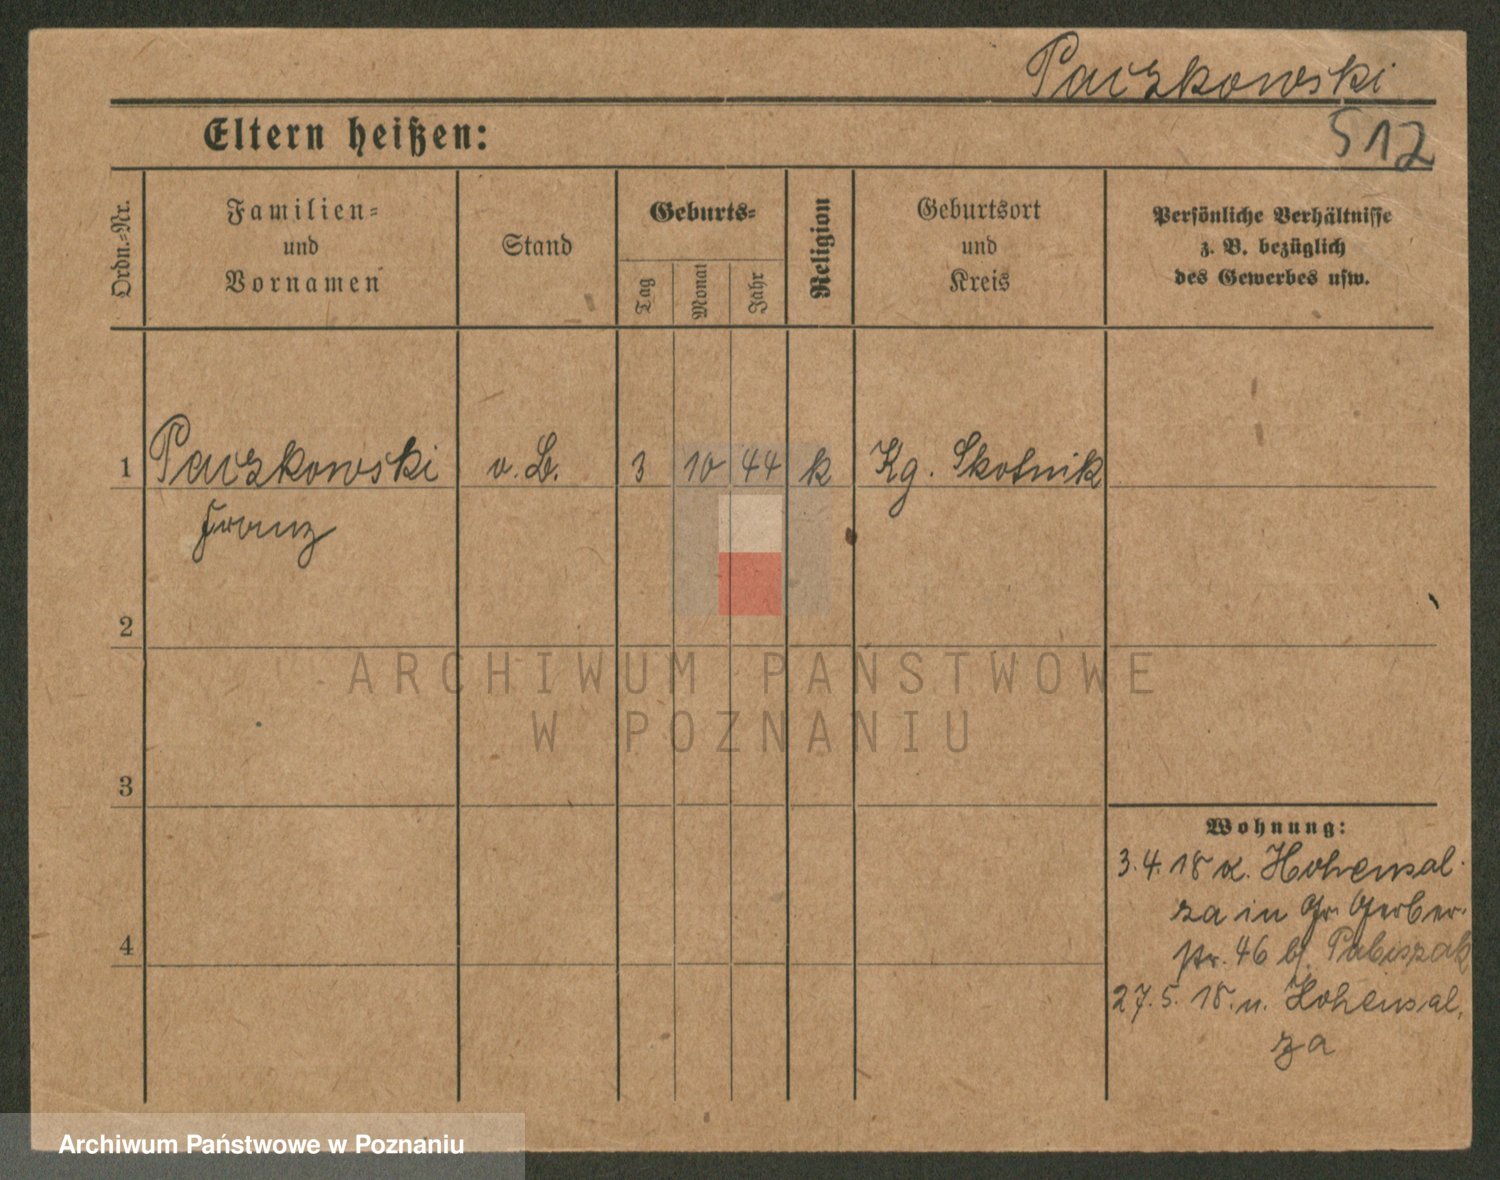 Paczkowski
512
Eltern heißen:
Ordn.-Nr.
Familien-
und
Vornamen
Stand
Geburts-
Tag
Monat
Jahr
Religion
Geburtsort
und
Kreis
Persönliche Verhältnisse
z. B. bezüglich
des Gewerbes usw.
1 Paczkowski v. B. 3 10 44 k Kg. Skotnik
Franz
2
ARCHIWUM PAŃSTWOWE
W POZNANIU
3
Wohnung:
3.4.18 v. Hohensal-
za in Gr. Gerber-
str. 46 b/ Pabiszak
4
27.5.18. n. Hohensal-
za
Archiwum Państwowe w Poznaniu